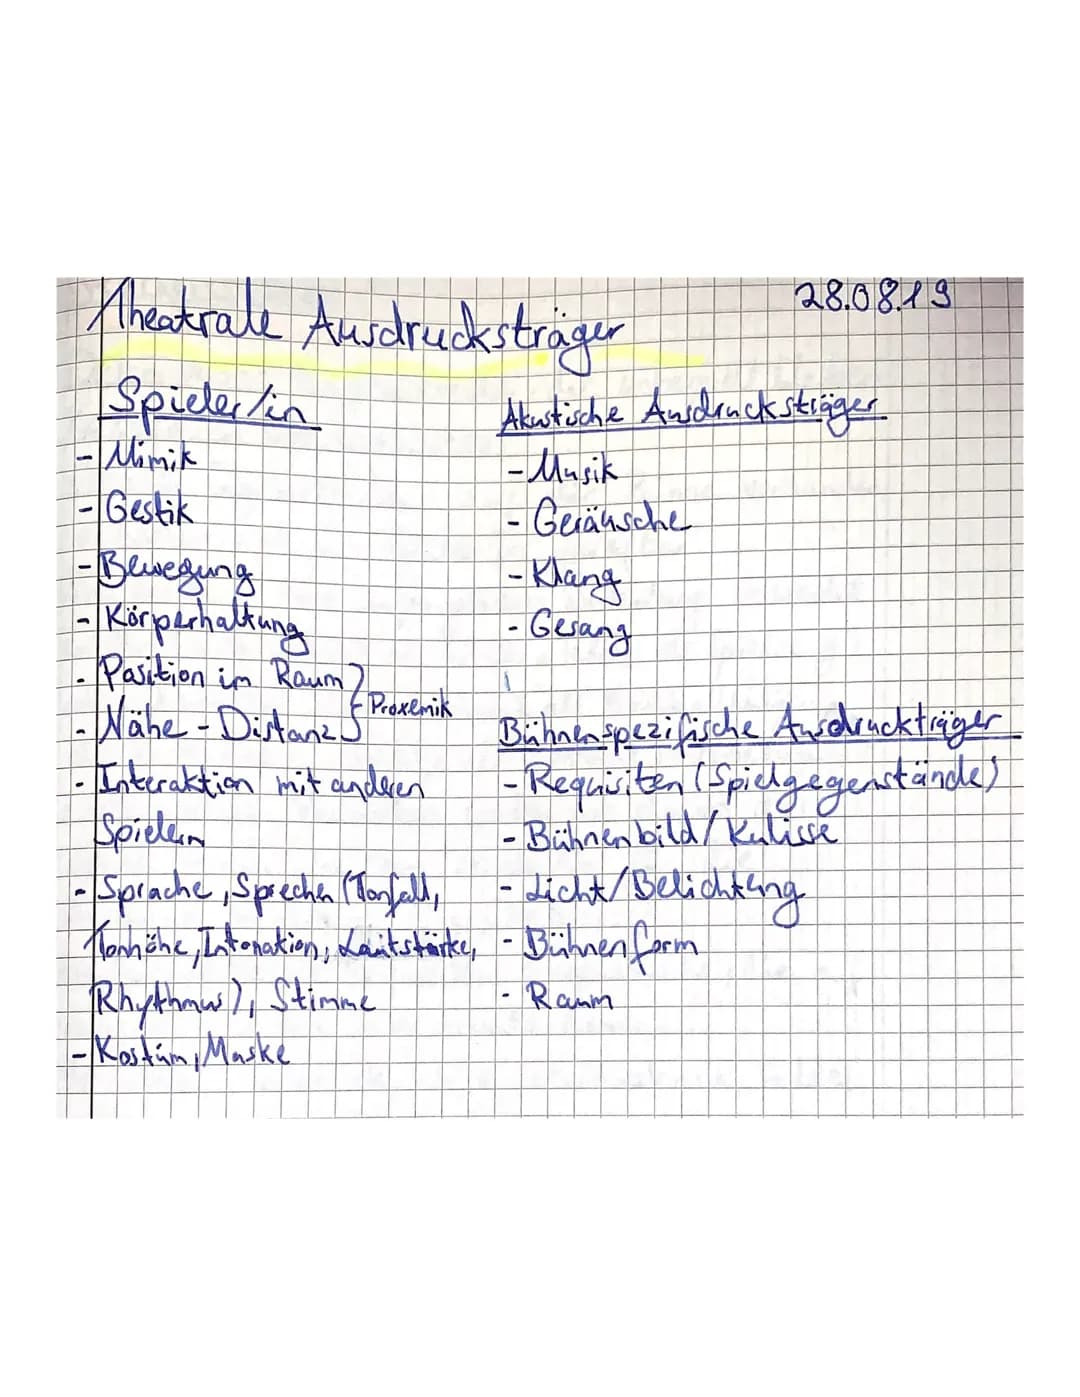 Theatrale Ausdrucksträger
28.08.19
Spieler/in
- Mimik
- Gestik
- Bewegung
- Körperhaltung
- Position im Raum
- Nähe - Distanz
} Proxemik
- Interaktion mit anderen
Spielern
- Sprache, Sprechen (Tonfall,
Tonhöhe, Intonation, Lautstärke,
Rhythmus), Stimme
- Kostüm, Maske
Akustische Ausdrucksträger
- Musik
- Geräusche
- Klang
- Gesang
Bühnenspezifische Ausdruckträger
- Requisiten (Spielgegenstände)
- Bühnenbild/Kulisse
- Licht/Belichtung
- Bühnenform
- Raum